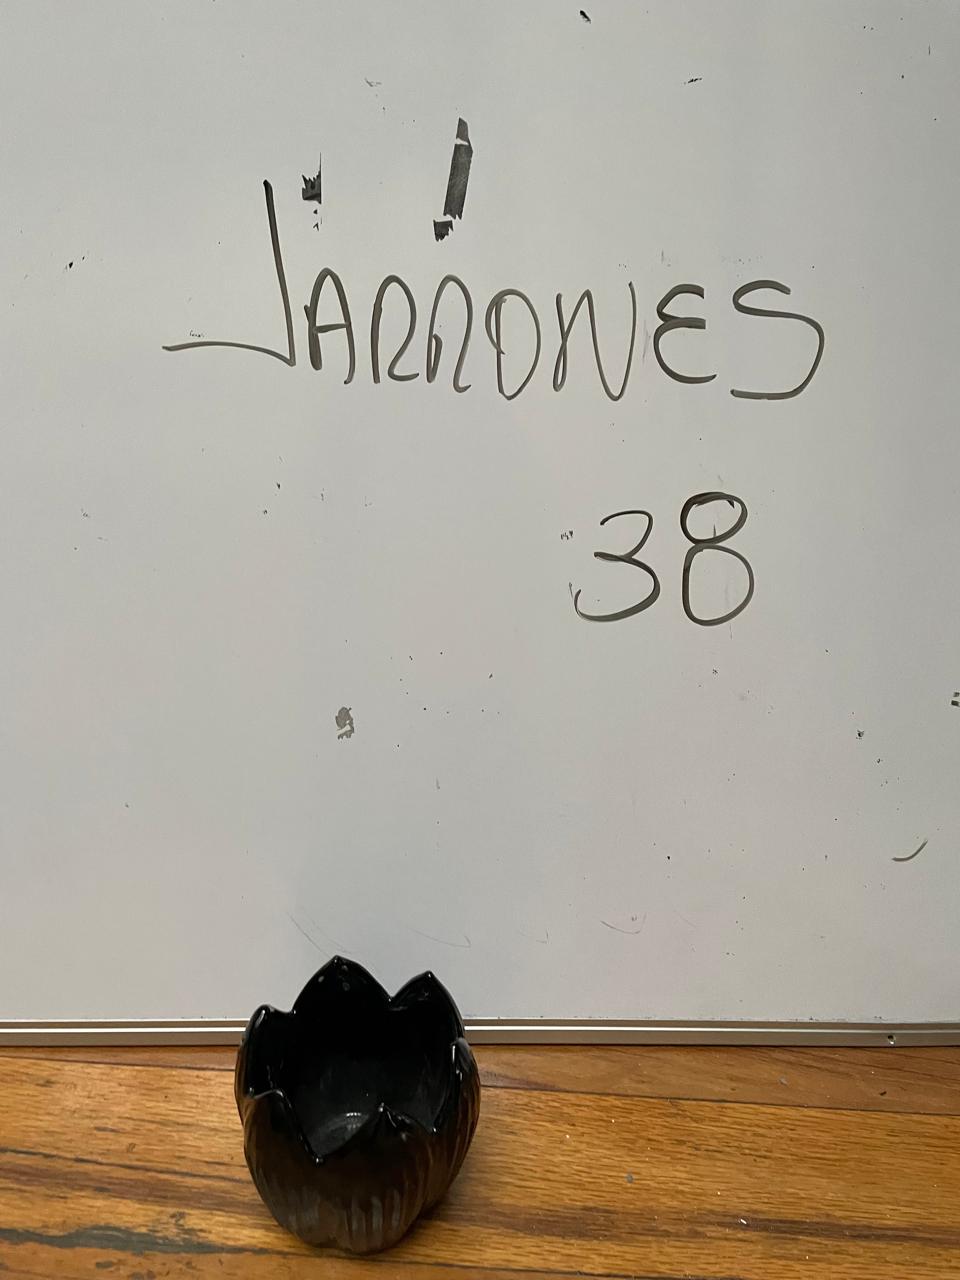 JARRONES
38